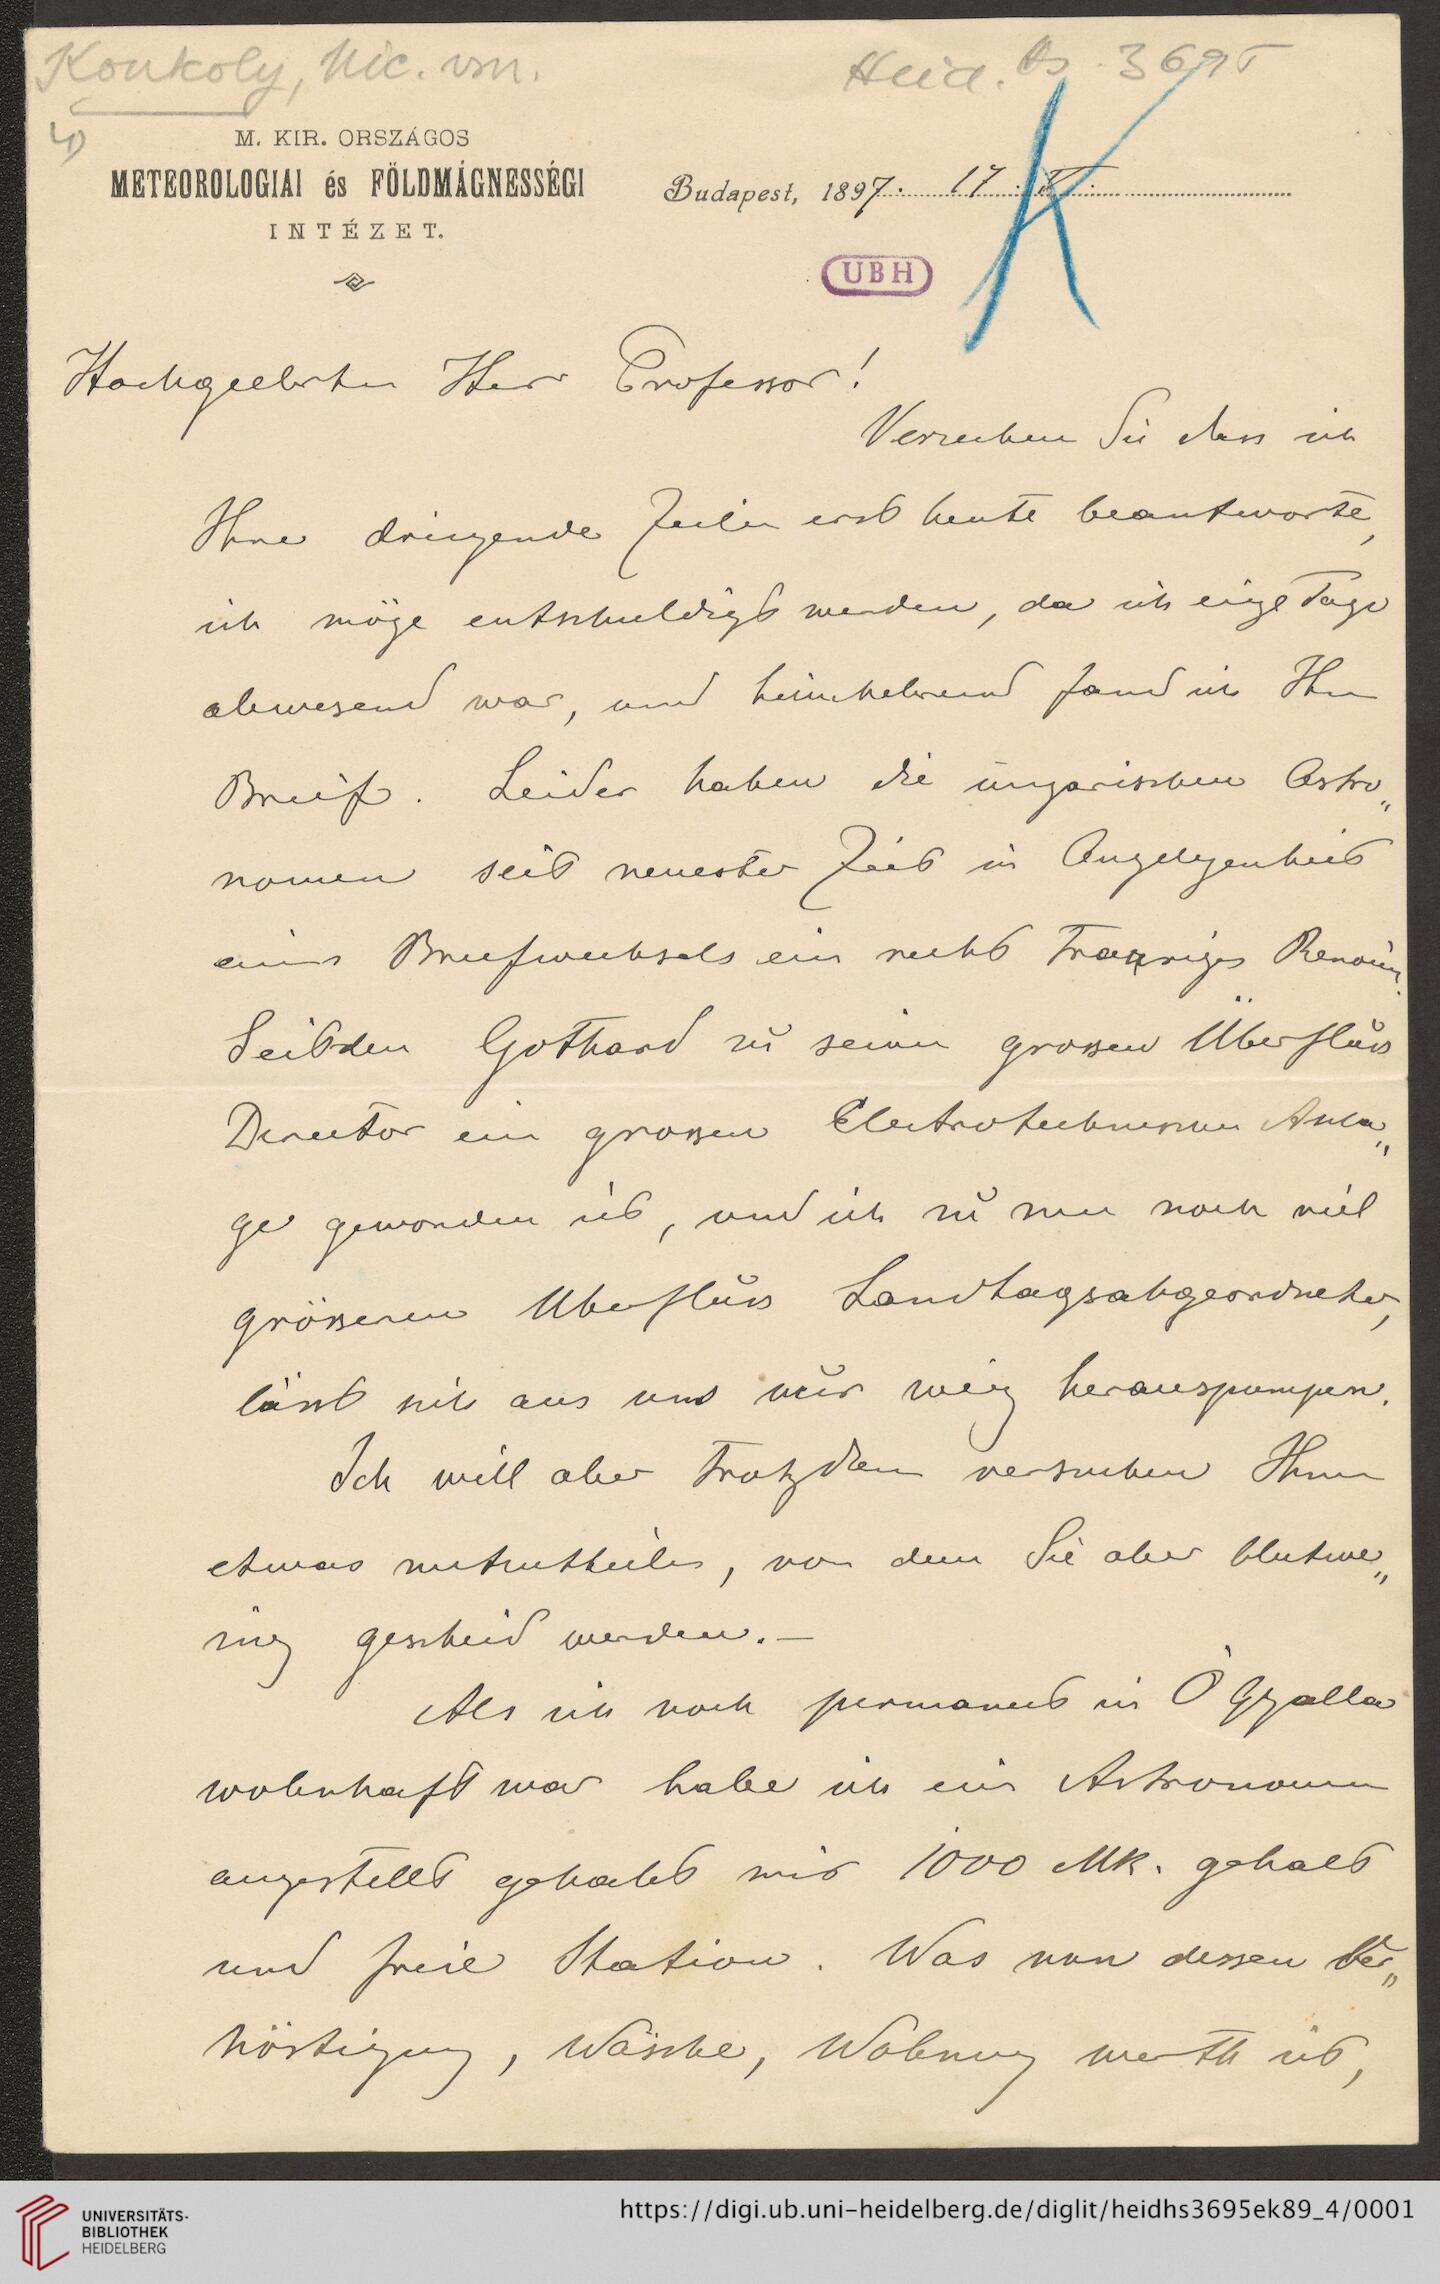 Konkoly, Nic. von.
Heid. Hs. 3695
4)
M. KIR. ORSZÁGOS
METEOROLOGIAI és FÖLDMÁGNESSÉGI
INTÉZET.
Budapest, 1897. 17.
UBH
K
Hochgeehrter Herr Professor!
Verzeihen Sie dass ich
Ihre dringende Zeilen erst heute beantworte,
ich möge entschuldigt werden, da ich einge Tage
abwesend war, und heimkehrend fand ich Ihren
Brief. Leider haben die ungarischen Astro„
nomen seit neuester Zeit in Angelegenheit
eines Briefwechsels ein recht trauriges Renomm.
Seitdem Gothard zu seinem grossen Überfluss
Director ein grossen Electrotechnischen Anla„
ge geworden ist, und ich zu nun noch viel
grösseren Überfluss Landtagsabgeordneter,
lässt sich aus uns nur wenig herauspumpen.
Ich will aber trotzdem versuchen Ihnen
etwas mitzutheilen, von dem Sie aber blutwe„
nig gescheid werden. —
Als ich noch permanent in Ó Gyalla
wohnhaft war habe ich ein Astronomen
angestellt gehabt mit 1000 Mk. gehalt
und freie Station. Was nun dessen Ver„
köstigung, Wäsche, Wohnung werth ist,
UNIVERSITÄTS-
BIBLIOTHEK
HEIDELBERG
https://digi.ub.uni-heidelberg.de/diglit/heidhs3695ek89_4/0001